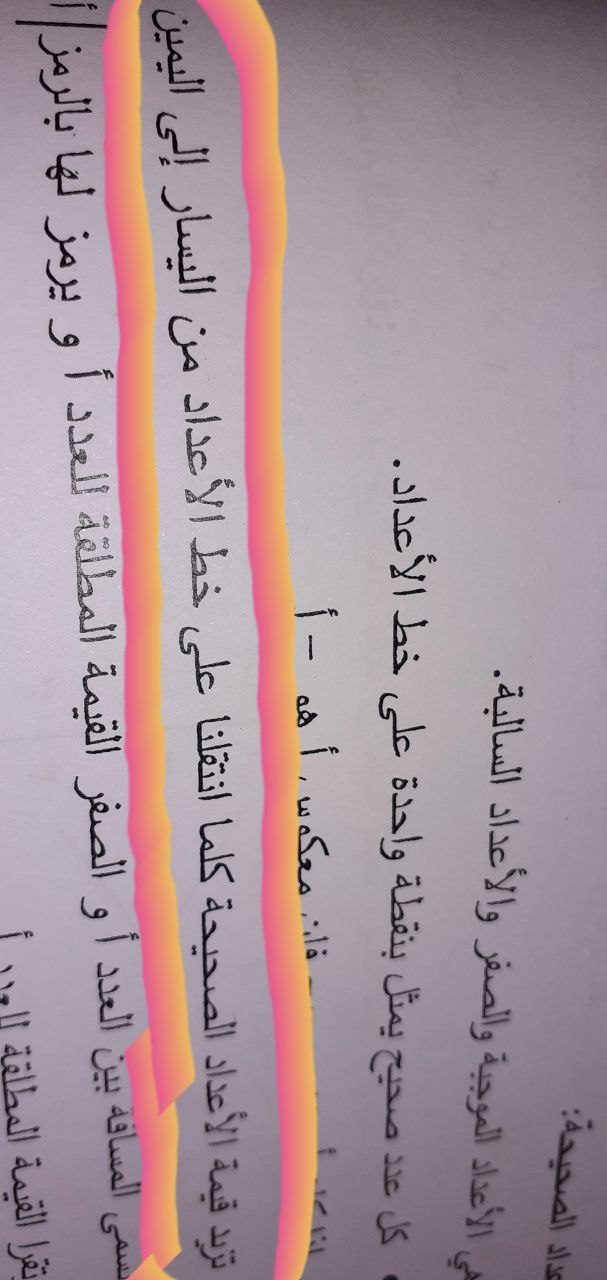 الصحيحة:
الأعداد الموجبة والصفر والأعداد السالبة.
كل عدد صحيح يمثل بنقطة واحدة على خط الأعداد.
معكوس أ هو - أ
تزيد قيمة الأعداد الصحيحة كلما انتقلنا على خط الأعداد من اليسار إلى اليمين
المسافة بين العدد أ و الصفر القيمة المطلقة للعدد أ و يرمز لها بالرمز |أ
القيمة المطلقة للعدد أ